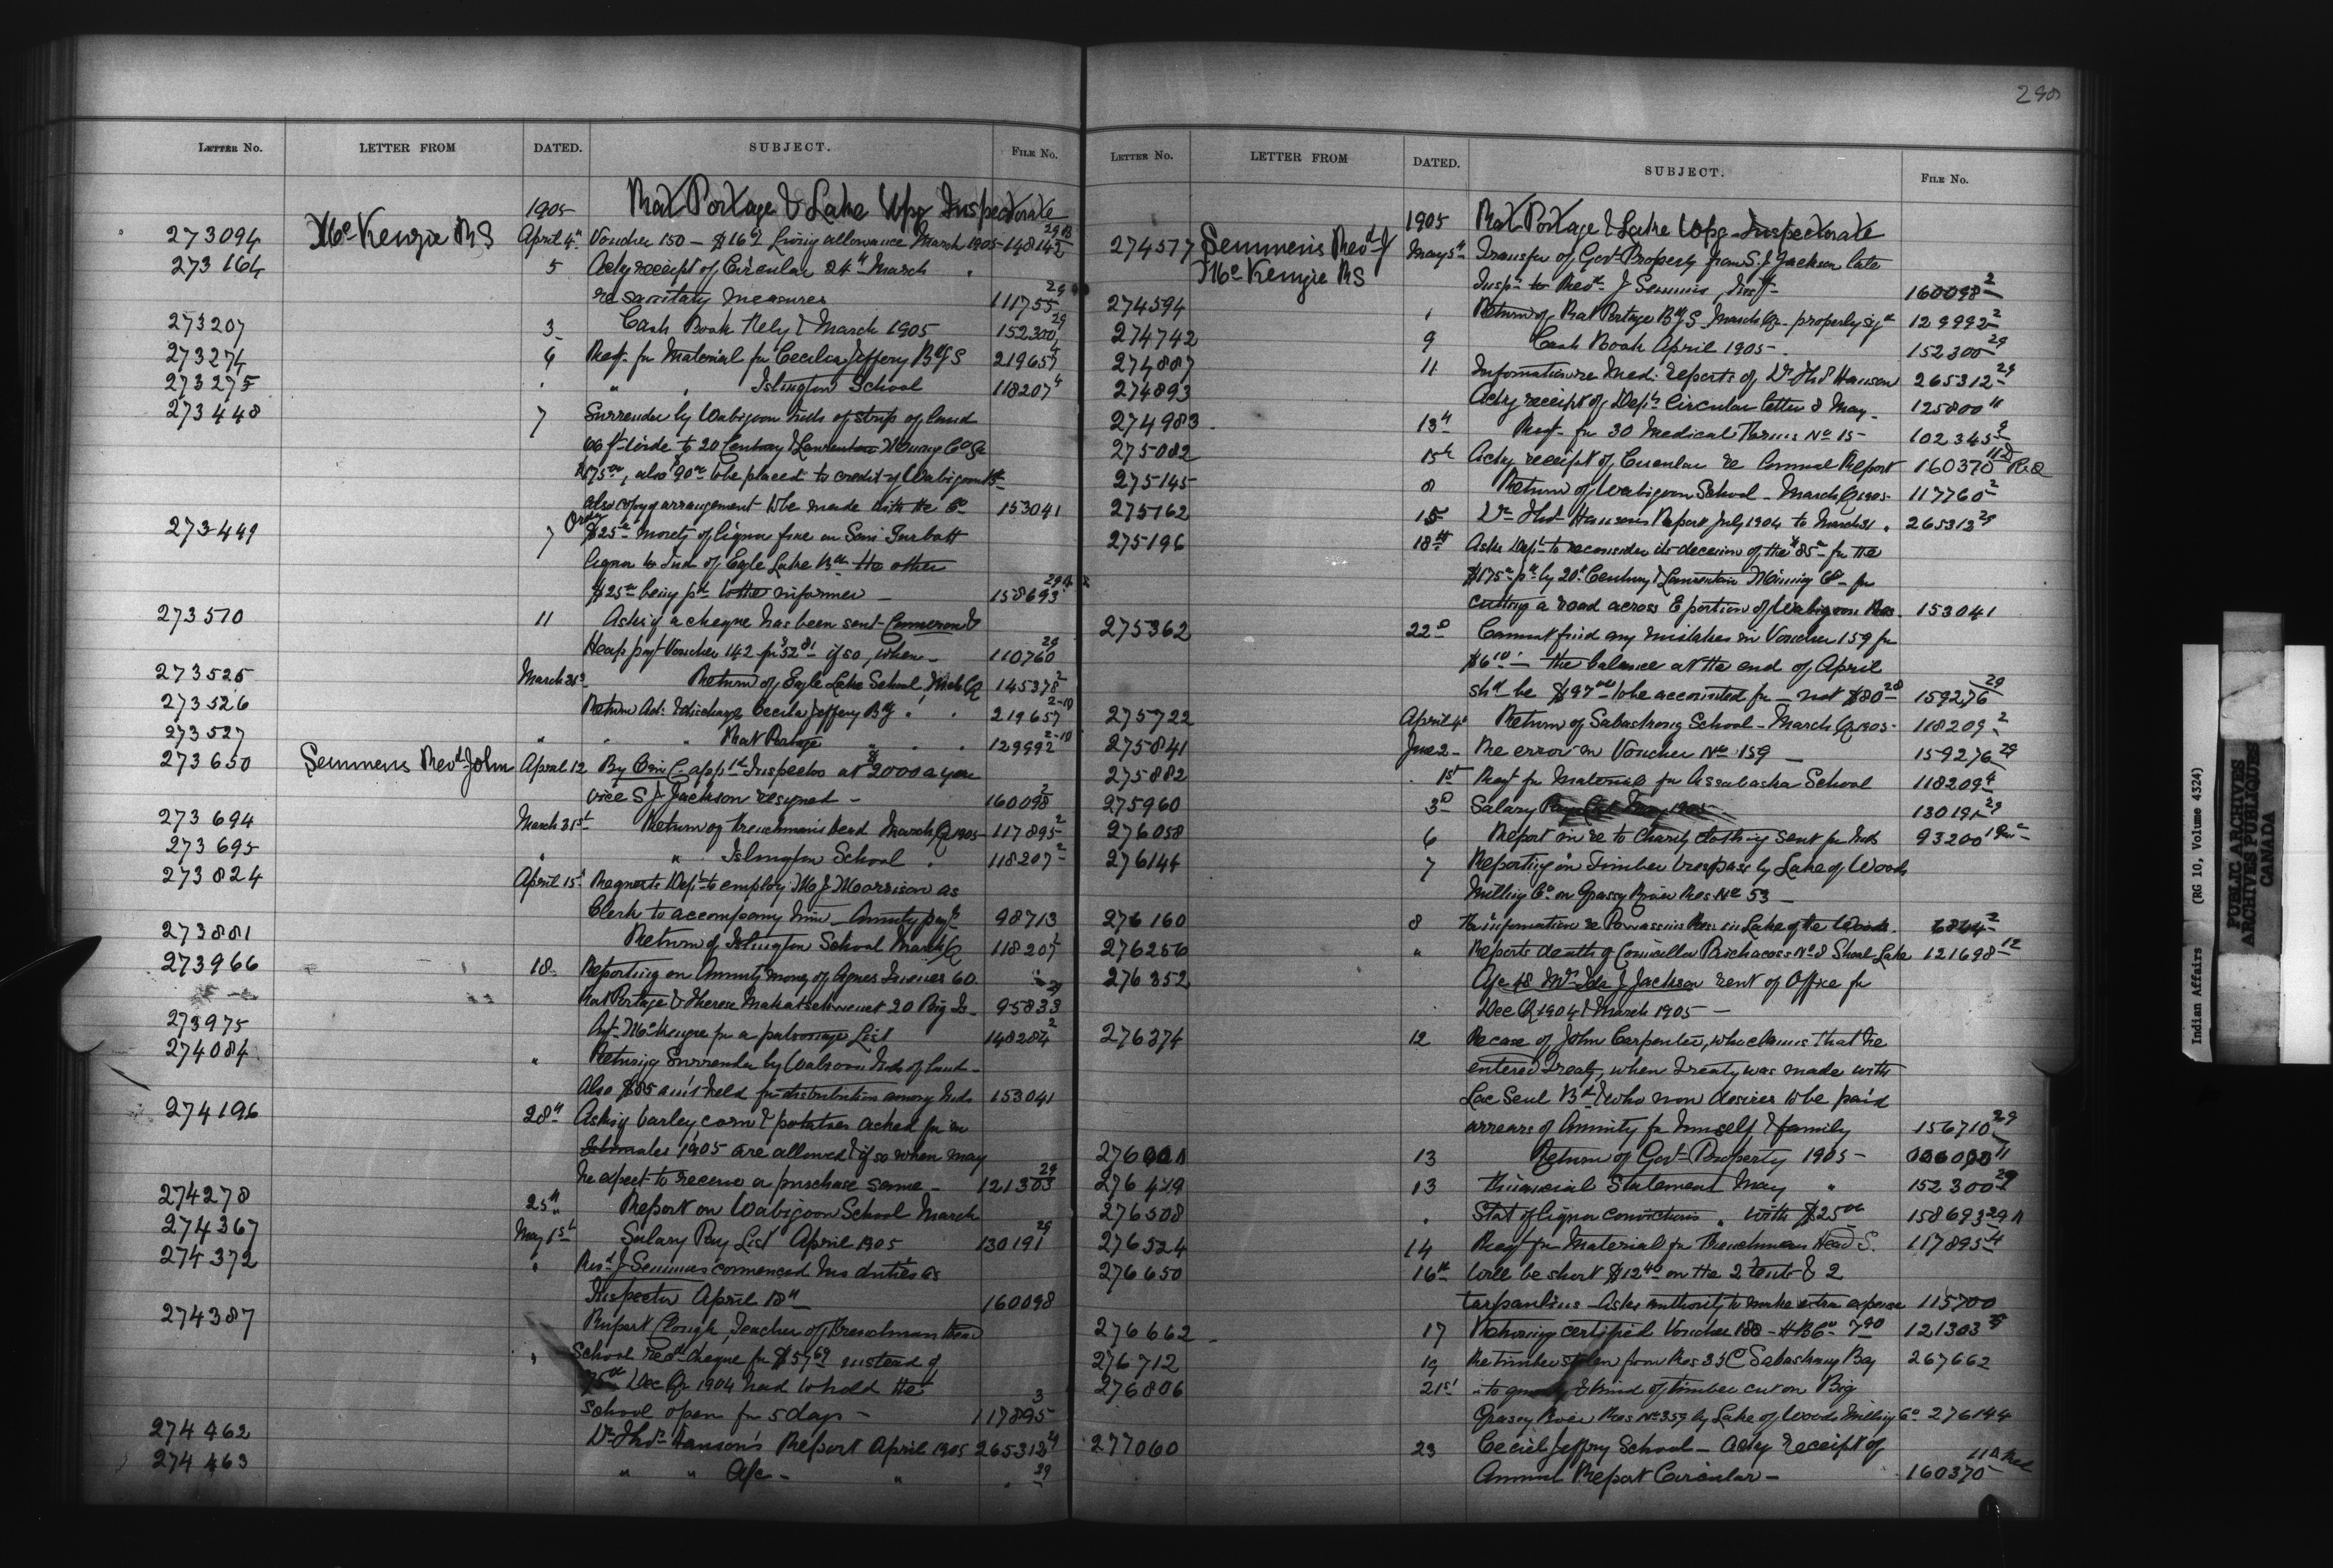 290
LETTER NO. LETTER FROM DATED. SUBJECT. FILE NO.
1905 Rat Portage & Lake Wpg Inspectorate
273094 McKenzie R S April 4th Voucher 150 – $16 living allowance March 1905 – 148142 29
273164 5 Ackg receipt of Circular 24th March
re sanitary measures 111755 29
273207 3 Cash Book March 1905 152300 29
273274 6 Reqt. for Material for Cecilia Jeffery Bdg S 219657 4
273275 " " Islington School 118207 4
273448 7 Surrender by Wabigoon Inds of strip of land
66 ft wide to 20 Century & Laurentian Mining Co
$175.00, also $90.00 to be placed to credit of Wabigoon
also copy of arrangement to be made with the Co 153041
273449 7 $25.00 moiety of liquor fine on
liquor to Ind. of Eagle Lake Bd. the other
$25.00 being pd to the informer – 158693 29
273510 11 Asks if a cheque has been sent Cameron &
Heap payt Voucher 142 for $52.81 if so, when – 110760 29
273525 March 31st Return of Eagle Lake School, Mch Q 145378 2
273526 Return Ad. & discharge Cecilia Jeffery Bdg " " 219657 2-10
273527 " " " Rat Portage " " " 129992 2-10
273650 Semmens Revd John April 12 By O in C appd Inspector at $2000 a year
vice S J Jackson resigned – 160098 2
273694 March 31st Return of Frenchmans head March Q 1905 – 117895 2
273695 " " Islington School " 118207 2
273824 April 15th Requests Dept to employ Mr J Morrison as
Clerk to accompany him – Annuity payts 98713
273881 Return of Islington School March Q 118207
273966 18 Reporting on Annuity money of Agnes 60
Rat Portage & Therese 20 Big Is – 95833 29
273975 Agt. McKenzie for a patronage List 148284 2
274084 " Returning Surrender by Wabigoon Inds of land –
Also $85 am't held for distribution among Inds 153041
274196 28th Asks if barley, corn & potatoes asked for in
Estimates 1905 are allowed & if so when may
he expect to receive or purchase same – 121303 29
274278 25th Report on Wabigoon School March
274367 May 1st Salary Pay List April 1905 130191 29
274372 " Revd J Semmens commenced his duties as
Inspector April 18th 160098
274387 Rupert Clough, Teacher of Frenchman Head
" School recd cheque for $57.69 instead of
Dec Qr 1904 had to hold the
school open for 5 days – 117895 3
274462 Dr Thos Hanson's Report April 1905 265312 4
274463 " " A/c – " " 29
LETTER NO. LETTER FROM DATED. SUBJECT. FILE NO.
1905 Rat Portage & Lake Wpg Inspectorate
274577 Semmens Revd J May 5th Transfer of Govt Property from S. J Jackson late
McKenzie R S
Inspr to Revd J Semmens, Inspr 160098 2
274594 " Return of Rat Portage Bdg S. March Qr – properly sigd 129992 2
274742 9 Cash Book April 1905 – 152300 29
274887 11 Information re Medl reports of Dr Thos Hanson 265312 29
274893 Ackg receipt of Dept. Circular letter 8 May – 125800
274983 13th Reqt for 30 Medical Forms No 15 – 102345
275082 15th Ackg receipt of Circular re Annual Report 160370
275145 8 Return of Wabigoon School – March Q 1905 – 117760 2
275162 15 Dr Thos Hanson's Report July 1904 to March 31 " 265313 29
275196 18th Asks Dept to reconsider its decision of the $85.00 for the
$175.00 pd by 20th Century & Laurentian Mining Co – for
cutting a road across E portion of Wabigoon Res. 153041
275362 22nd Cannot find any mistakes in Voucher 159 for
$6.10 – the balance at the end of April
shd be $97.00 to be accounted for – not $80.20 159276 29
275722 April 4th Return of Sabaskong School – March Q 1905 – 118209 2
275841 June 2 – Re error in Voucher No 159 – 159276 29
275882 1st Reqt for Material for Assabaska School 118209 4
275960 3rd Salary Pay List May 1905 130191 29
276058 6 Report on re to Charity clothing sent for Inds 93200
276144 7 Reporting on Timber trespass by Lake of Woods
Milling Co on Grassy River Res No 53 –
276160 8 information re Res. in Lake of the Woods. 6844 2
276256 " Reports death of Councillor No 8 Shoal Lake 121698 12
276352 A/c of Mrs Ida J Jackson rent of Office for
Dec Q 1904 & March 1905 –
276374 12 Re case of John Carpenter, who claims that he
entered Treaty, when Treaty was made with
Lac Seul Bd & who now desires to be paid
arrears of Annuity for himself & family 156710 29
13 Return of Govt Property 1905 –
276479 13 Financial Statement May " 152300 29
276508 " Stat of liquor convictions " with $25.00 158693 29
276524 14 Reqt for Material for Frenchman Head S. 117895 4
276650 16th Will be short $12.40 on the 2 tents & 2
tarpaulins – Asks authority to make extra expense 115700
276662 17 Returning certified Voucher 180 – H B Co 7.90 121303 29
276712 19 Re timber stolen from Res 35C Sabaskong Bay 267662
276806 21st " to & kind of timber cut on Big
Grassy River Res No 35G by Lake of Woods Milling Co 276144
277060 23 Cecil Jeffry School – Ackg receipt of
Annual Report Circular – 160370
Indian Affairs (RG 10, Volume 4324)
PUBLIC ARCHIVES
ARCHIVES PUBLIQUES
CANADA